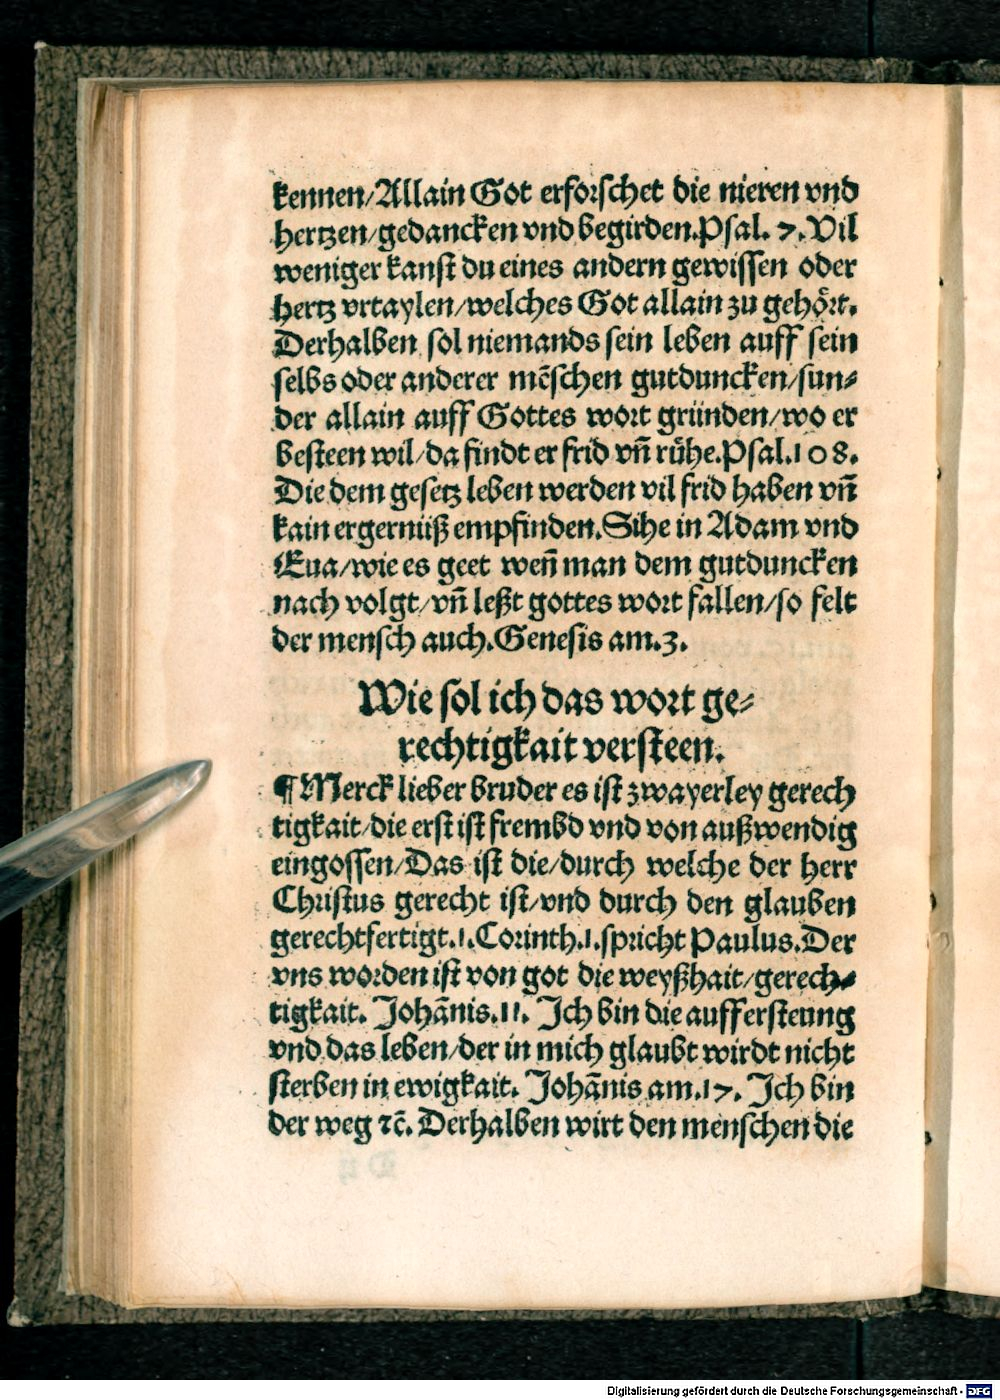 kennen/Allain Got erforschet die nieren vnd
hertzen/gedancken vnd begirden.Psal. 7. Vil
weniger kanst du eines andern gewissen oder
hertz vrtaylen/welches Got allain zu gehört.
Derhalben sol niemands sein leben auff sein
selbs oder anderer mēschen gutduncken/sun⸗
der allain auff Gottes wort gründen/wo er
besteen wil/da findt er frid vn̄ rühe.Psal.108.
Die dem gesetz leben werden vil frid haben vn̄
kain ergerniiß empfinden.Sihe in Adam vnd
Eua/wie es geet wen̄ man dem gutduncken
nach volgt/vn̄ leßt gottes wort fallen/so felt
der mensch auch.Genesis am.3.
Wie sol ich das wort ge⸗
rechtigkait versteen.
¶ Merck lieber bruder es ist zwayerley gerech
tigkait/die erst ist frembd vnd von außwendig
eingossen/Das ist die/durch welche der herr
Christus gerecht ist/vnd durch den glauben
gerechtfertigt.1.Corinth.1.spricht Paulus.Der
vns worden ist von got die weyßhait/gerech⸗
tigkait. Johānis.11. Ich bin die aufferstenng
vnd das leben/der in mich glaubt wirdt nicht
sterben in ewigkait. Johānis am.17. Ich bin
der weg ⁊c̄. Derhalben wirt den menschen die
Digitalisierung gefördert durch die Deutsche Forschungsgemeinschaft - DFG